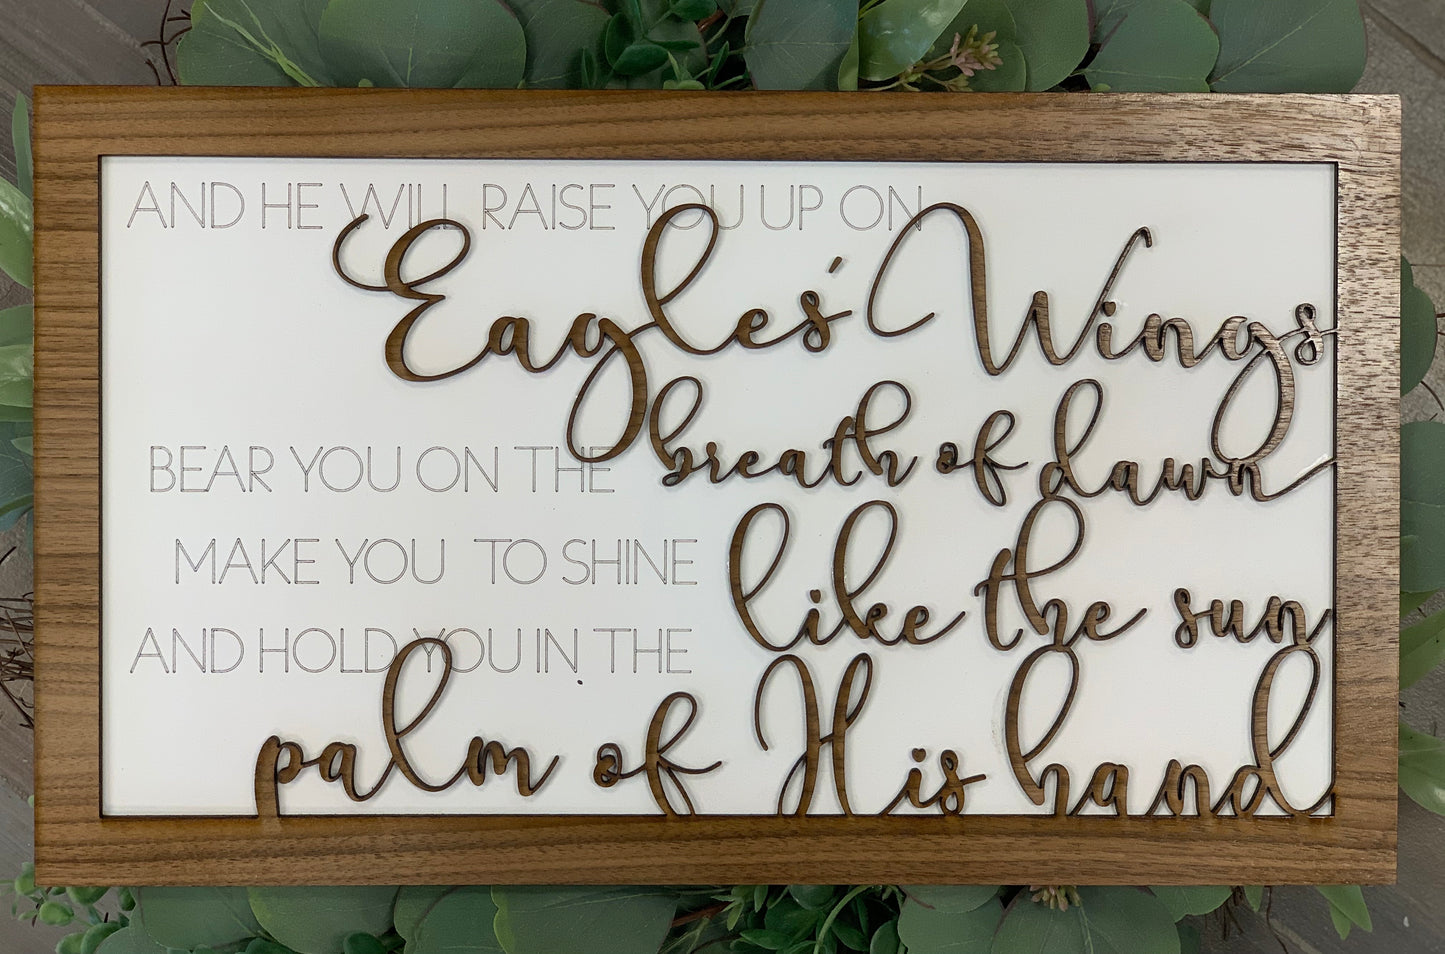 AND HE WILL RAISE YOU UP ON
Eagles' Wings
BEAR YOU ON THE breath of dawn
MAKE YOU TO SHINE like the sun
AND HOLD YOU IN THE
palm of His hand